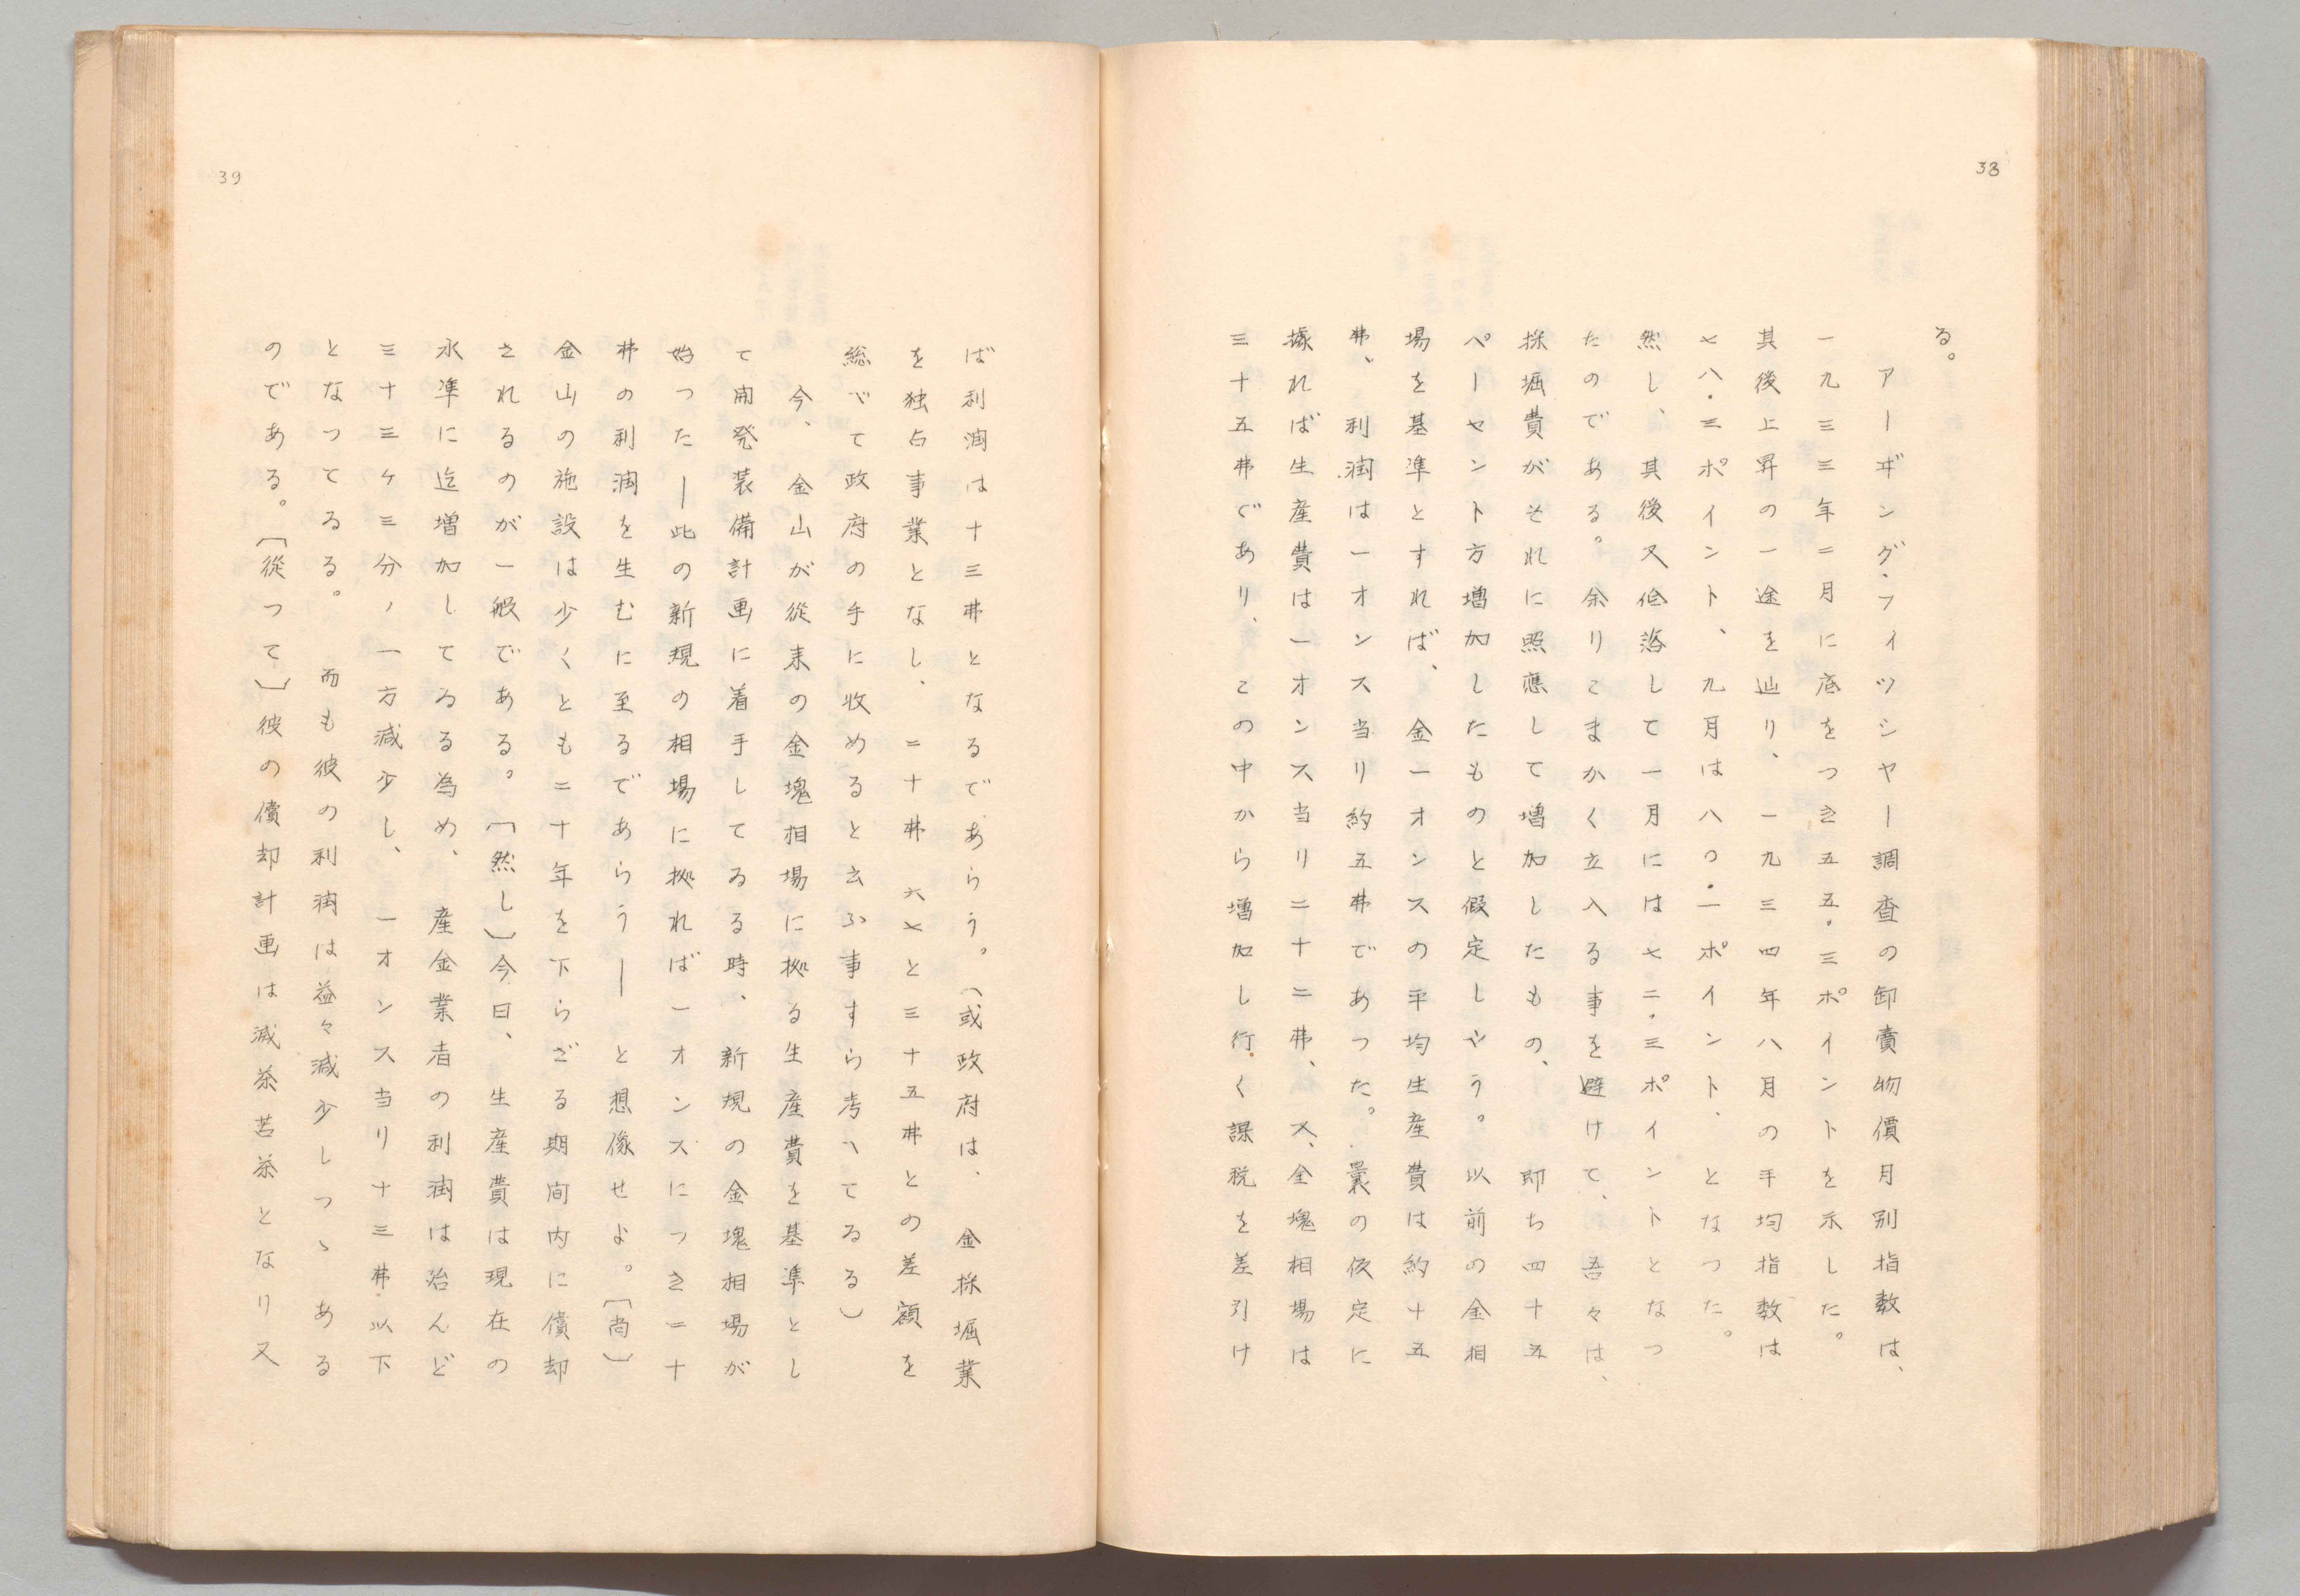 38
る。
アーヰング・フイツシヤー調査の卸賣物價月別指数は、
一九三三年二月に底をつき五五・三ポイントを示した。
其後上昇の一途を辿り、一九三四年八月の平均指数は
七八・三ポイント、九月は八〇・一ポイント、となつた。
然し、其後又低落して一月には七二・三ポイントとなつ
たのである。余りこまかく立入る事を避けて、吾々は、
採堀費がそれに照應して増加したもの、即ち四十五
ペーセント方増加したものと假定しやう。以前の金相
場を基準とすれば、金一オンスの平均生産費は約十五
弗、利潤は一オンス当り約五弗であつた。曩の仮定に
據れば生産費は一オンス当り二十二弗、又、金塊相場は
三十五弗であり、この中から増加し行く課税を差引け
39
ば利潤は十三弗となるであらう。(或政府は、金採堀業
を独占事業となし、二十弗六七と三十五弗との差額を
総べて政府の手に收めると云ふ事すら考へてゐる)
今、金山が從来の金塊相場に拠る生産費を基準とし
て開発装備計画に着手してゐる時、新規の金塊相場が
始つた―此の新規の相場に拠れば一オンスにつき二十
弗の利潤を生むに至るであらう―と想像せよ。〔尚〕
金山の施設は少くとも二十年を下らざる期间内に償却
されるのが一般である。〔然し〕今日、生産費は現在の
水準に迄増加してゐる為め、産金業者の利潤は殆んど
三十三ヶ三分ノ一方減少し、一オンス当り十三弗以下
となつてゐる。而も彼の利潤は益々減少しつゝある
のである。〔從つて〕彼の償却計画は滅茶苦茶となり又